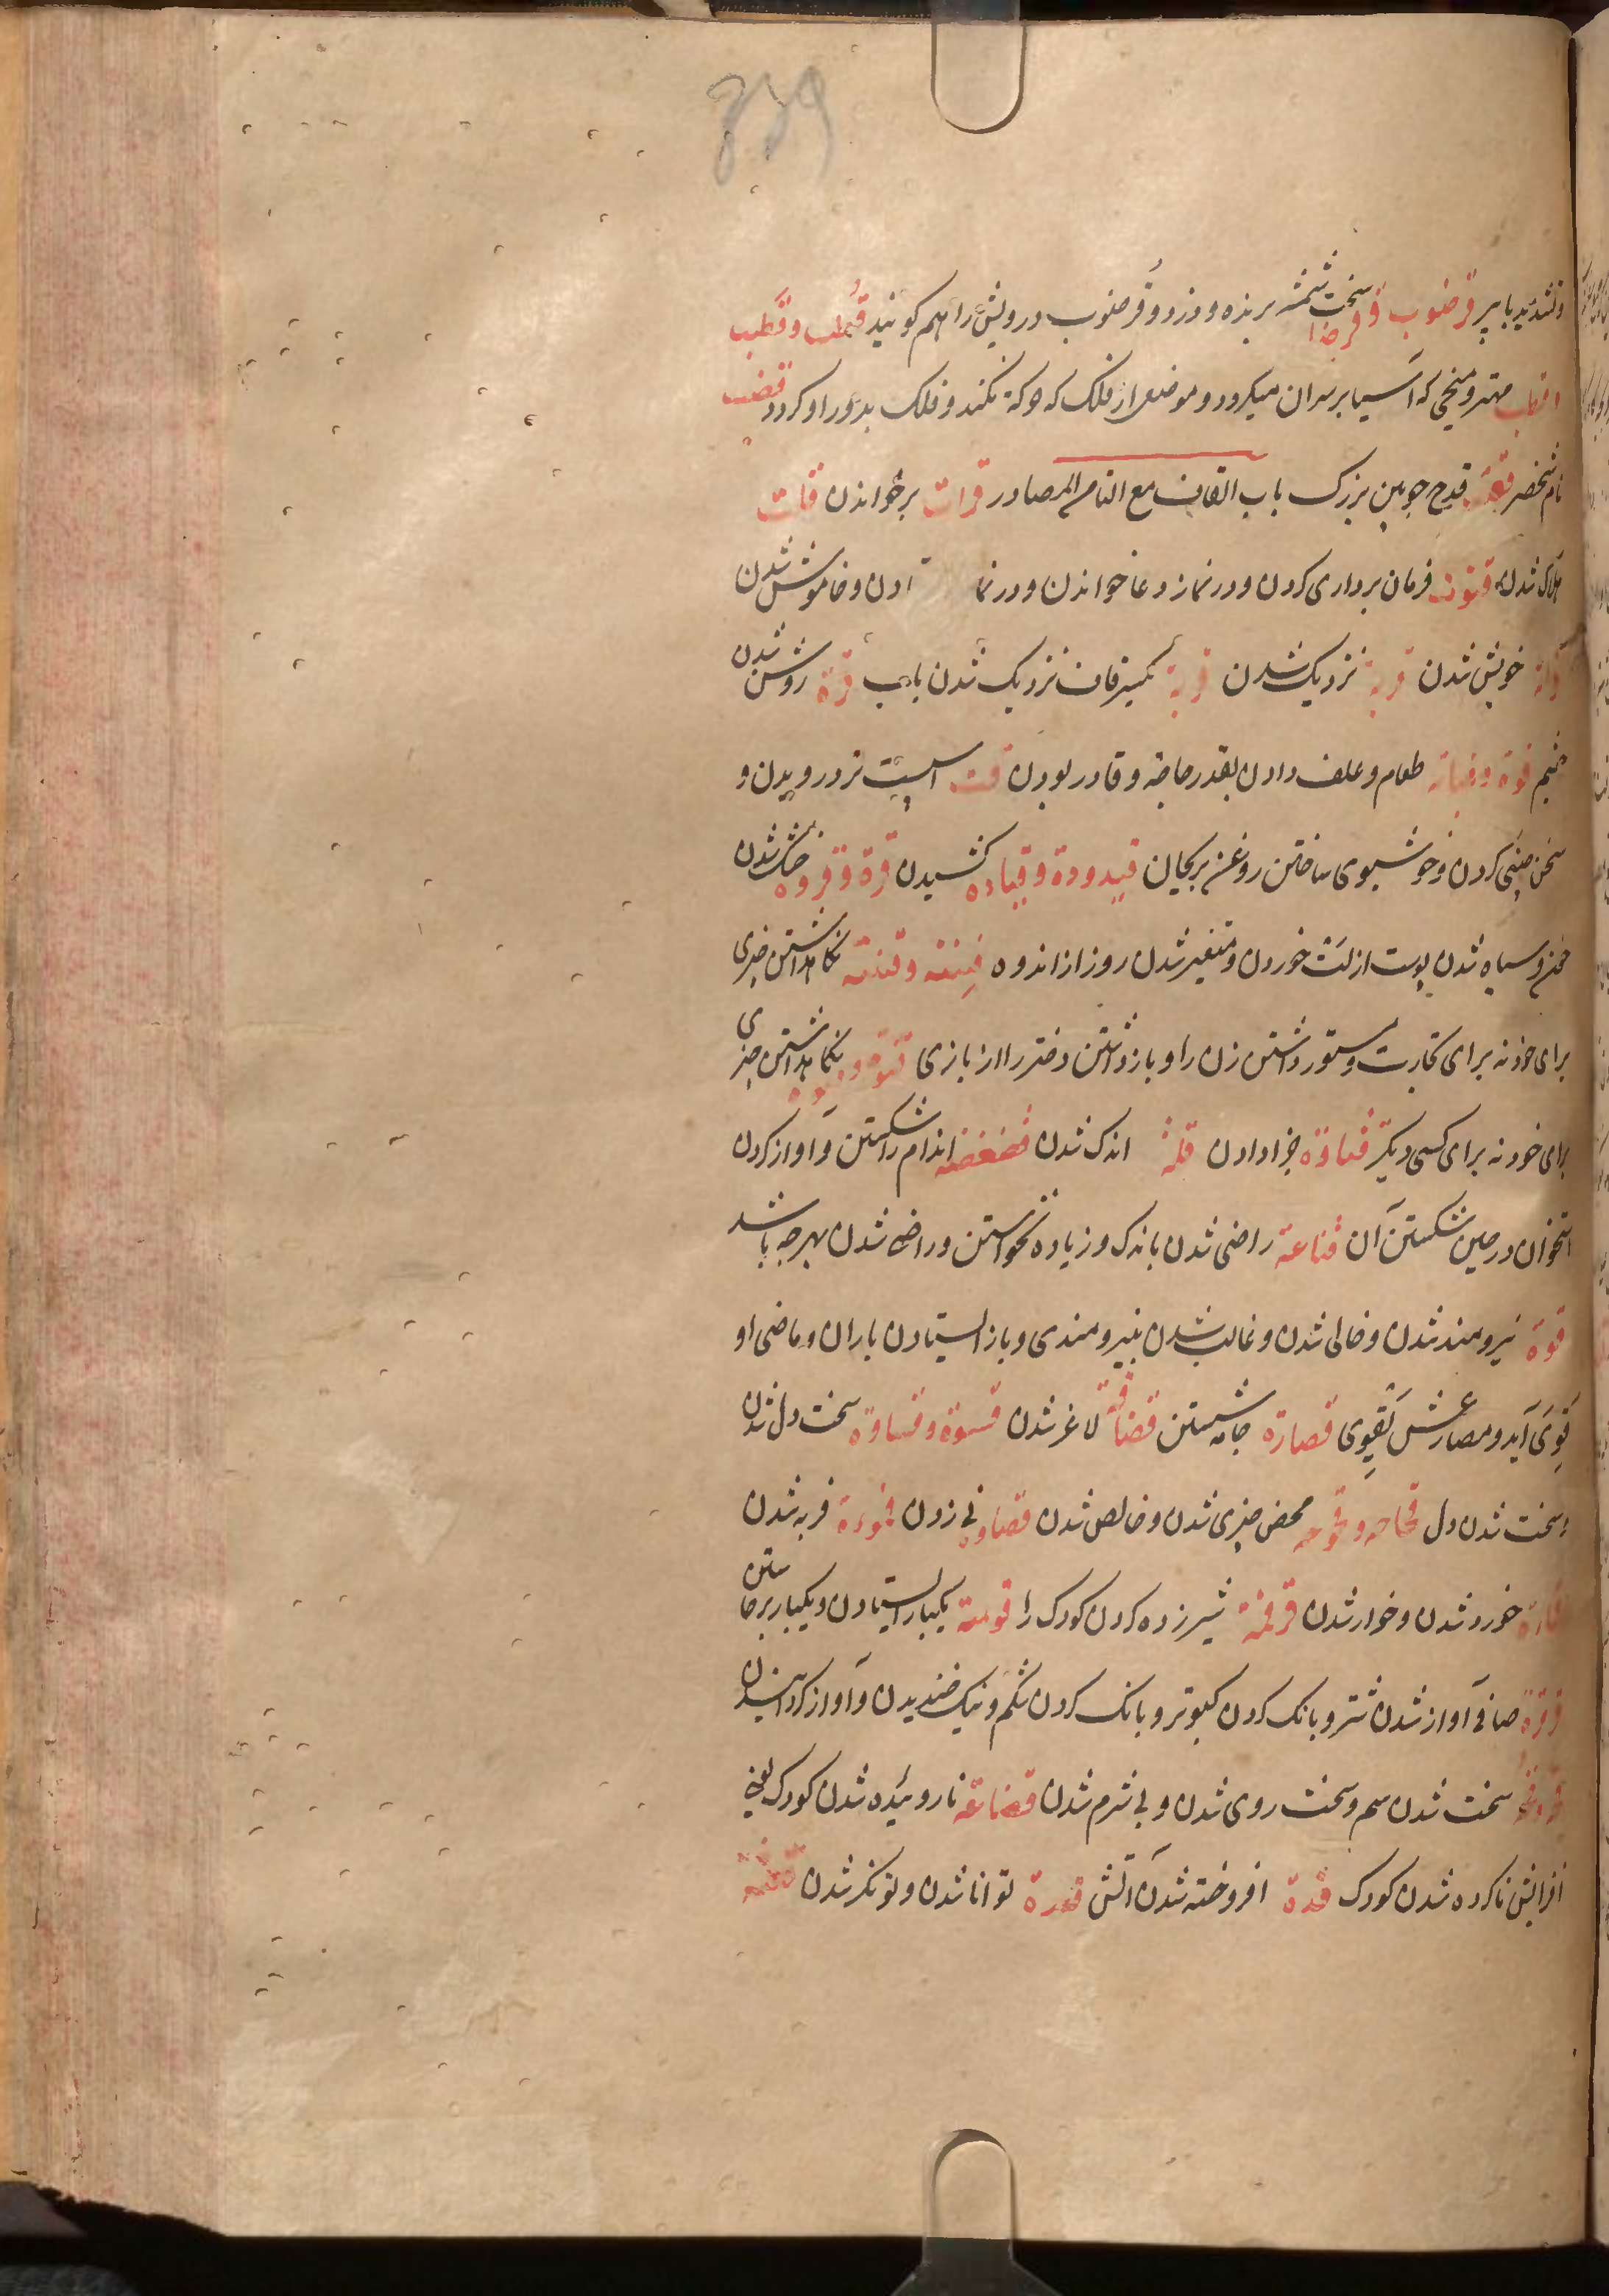 739
وتشدید با پیر قرضوب و قرضاب سخت شمشیر برنده و دزد و قرضوب درویش را هم گویند قطب و قطب
اقطاب مهتر و میخی که آسیا بر سر آن میگردد و موضعی از فلک که حرکة نکند و فلک بدور او گردد قعضب
نام شخصی قعب قدح چوبین بزرک باب القاف مع التاء المصادر قراءت برخواندن قات
هلاک شدن قنوت فرمان برداری کردن و در نماز دعا خواندن و در نما ادن و خاموش شدن
خویش شدن قربة نزدیک شدن قربة بکسر قاف نزدیک شدن بآب قرة روشن شدن
چشم قوة وقیاتة طعام و علف دادن بقدر حاجة و قادر بودن قت اسپست تر درویدن و
سخن چینی کردن و خوشبوی ساختن روغن بریحان قیدودة و قیاده کشیدن قرة و قروه خشک شدن
خون و سیاه شدن پوست از لت خوردن و متغیر شدن روز از اندوه قینة و قنیة نکاهداشتن چیزی
برای خود نه برای تجارت و مستور داشتن زن را و بازداشتن دختر را از بازی قنوة و نکاهداشتن چیزی
برای خود نه برای کسی دیگر قناوة جزا دادن قلة اندک شدن قضقضه اندام را شکستن و آواز کردن
استخوان در حین شکستن آن قناعة راضی شدن باندک و زیاده نخواستن و راضی شدن بهرچه باشد
قوة نیرومند شدن و خالی شدن و غالب شدن بنیرومندی و باز ایستادن باران و ماضی او
قوی آید و مضارعش یقوی قصارة جامه شستن قضافة لاغر شدن قسوة و قساوة سخت دل شدن
و سخت شدن دل قحاحه و قحوحه محض چیزی شدن و خالص شدن قصاوه نی زدن قموءة فربه شدن
قماءة خورد شدن و خوار شدن قرقمة شیرزده کردن کودک را قومة یکبار ایستادن و یکبار برخاستن
قرقرة صافی آواز شدن شتر و بانک کردن کبوتر و بانک کردن شکم و نیک خندیدن و آواز گردانیدن
سخت شدن سم و سخت روی شدن و بی شرم شدن قضاعة ناروئیده شدن کودک یعنی
افزایش ناکرده شدن کودک قدة افروخته شدن آتش قدرة توانا شدن و تونکر شدن